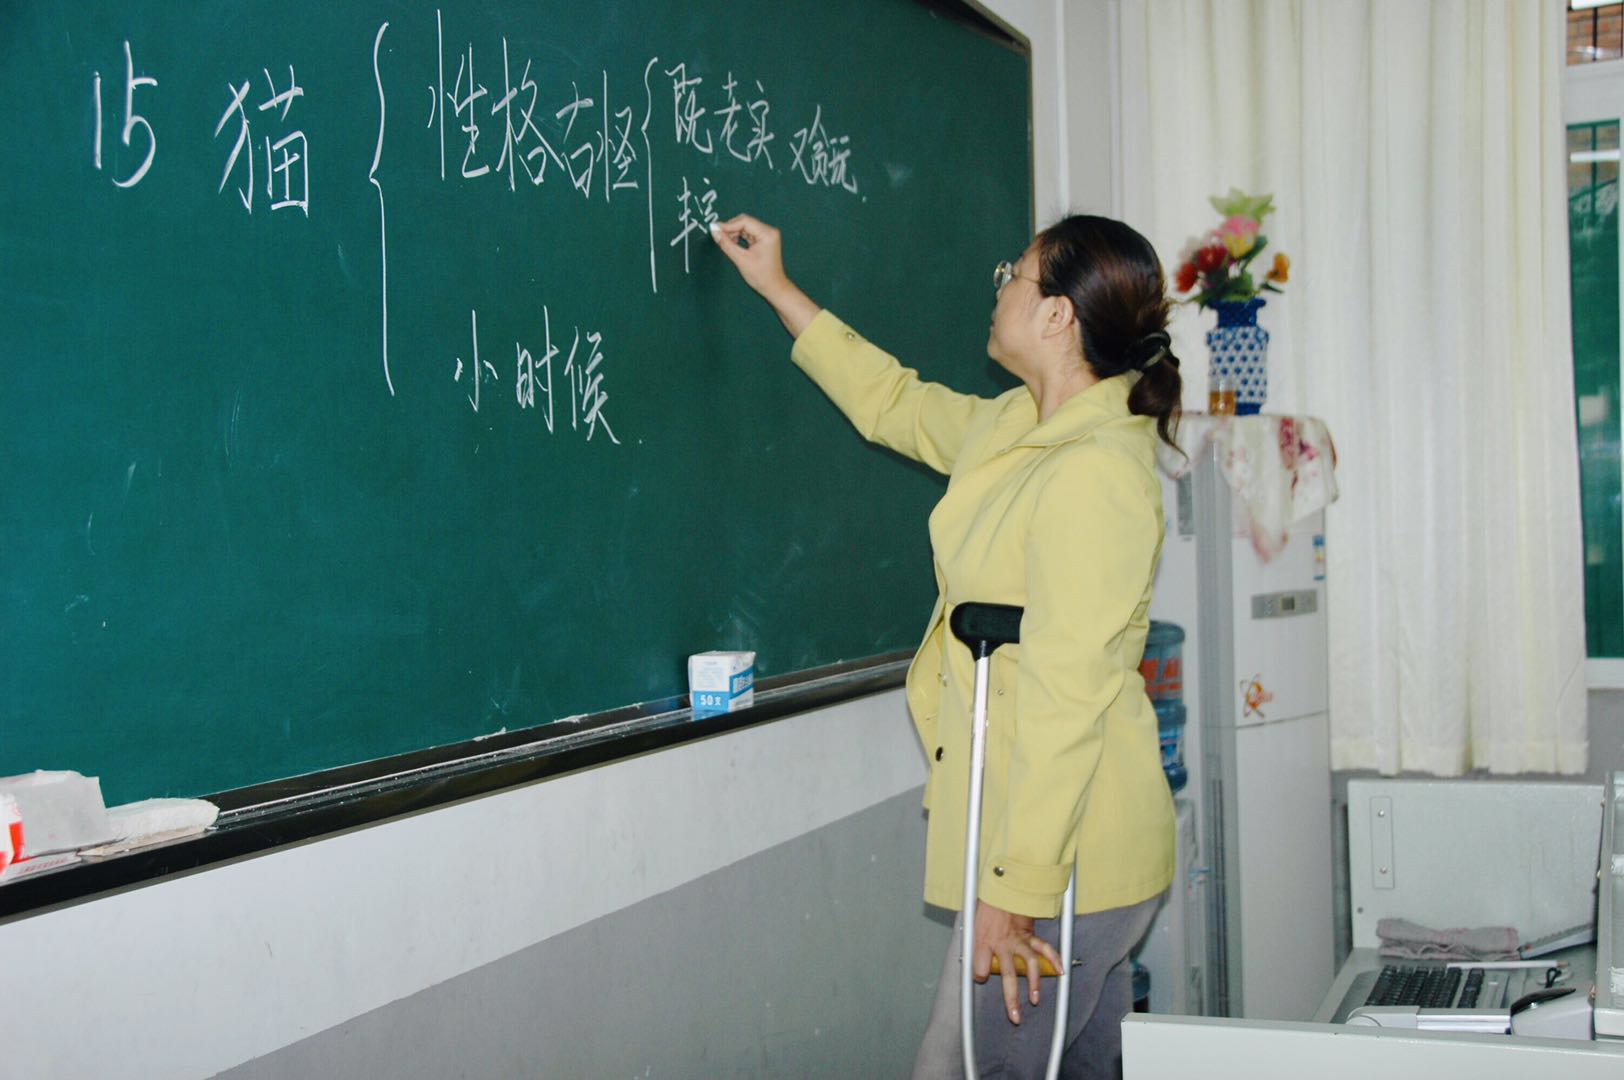 15 猫
性格古怪
既老实 又贪玩.
小时候.
50支